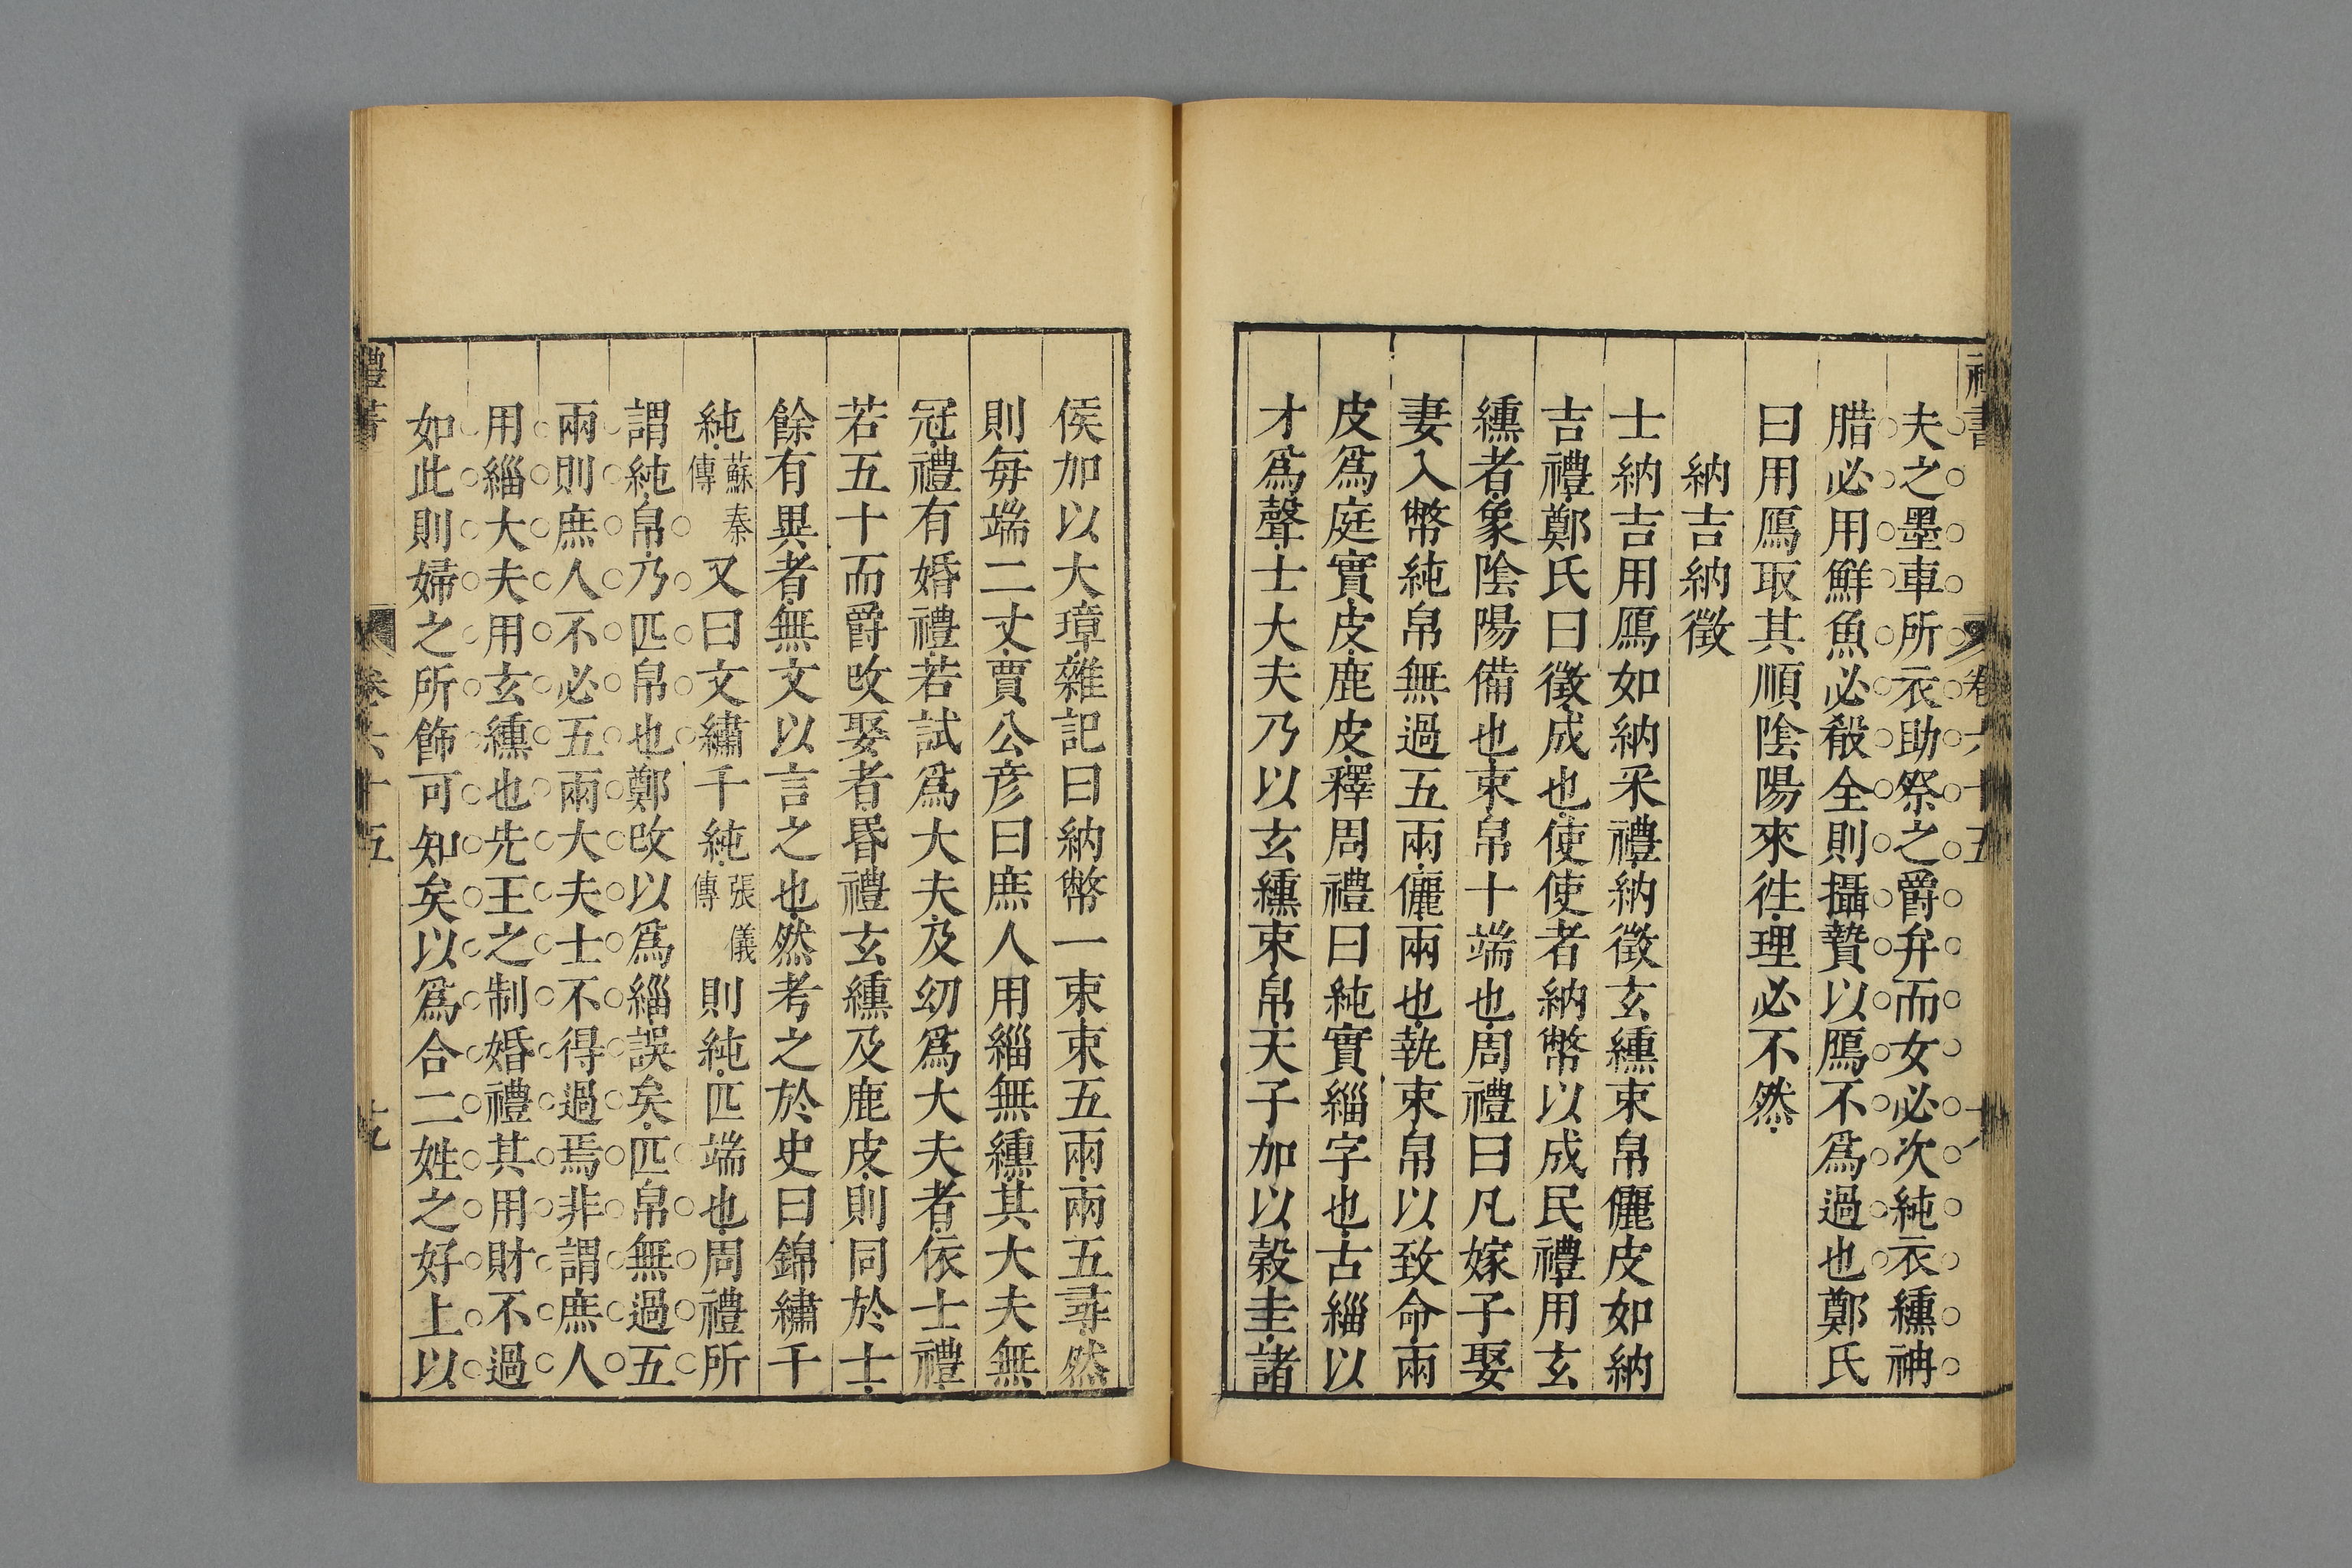 禮書 卷六十五 十八
夫之墨車所衣助祭之爵弁而女必次純衣纁袡
腊必用鮮魚必殽全則攝贄以鴈不爲過也鄭氏
曰用鴈取其順陰陽來徃理必不然
納吉納徵
士納吉用鴈如納采禮納徵玄纁束帛儷皮如納
吉禮鄭氏曰徵成也使使者納幣以成民禮用玄
纁者象陰陽備也束帛十端也周禮曰凡嫁子娶
妻入幣純帛無過五兩儷兩也執束帛以致命兩
皮爲庭實皮鹿皮釋周禮曰純實緇字也古緇以
才爲聲士大夫乃以玄纁束帛天子加以穀圭諸
侯加以大璋雜記曰納幣一束束五兩兩五尋然
則每端二丈賈公彦曰庶人用緇無纁其大夫無
冠禮有婚禮若試爲大夫及幼爲大夫者依士禮
若五十而爵改娶者昬禮玄纁及鹿皮則同於士
餘有異者無文以言之也然考之於史曰錦繡千
純蘇秦傳又曰文繡千純張儀傳則純匹端也周禮所
謂純帛乃匹帛也鄭改以爲緇誤矣匹帛無過五
兩則庶人不必五兩大夫士不得過焉非謂庶人
用緇大夫用玄纁也先王之制婚禮其用財不過
如此則婦之所飾可知矣以爲合二姓之好上以
禮書 卷六十五 十九